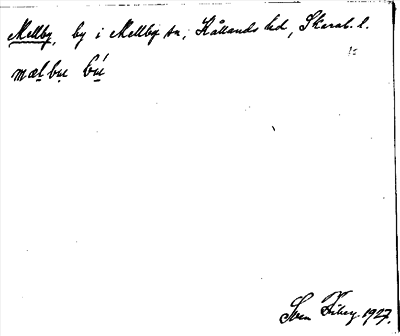 Mellby, by i Mellby sn, Kållands hd, Skarab. l.
mælbu bú
Sven 1927.